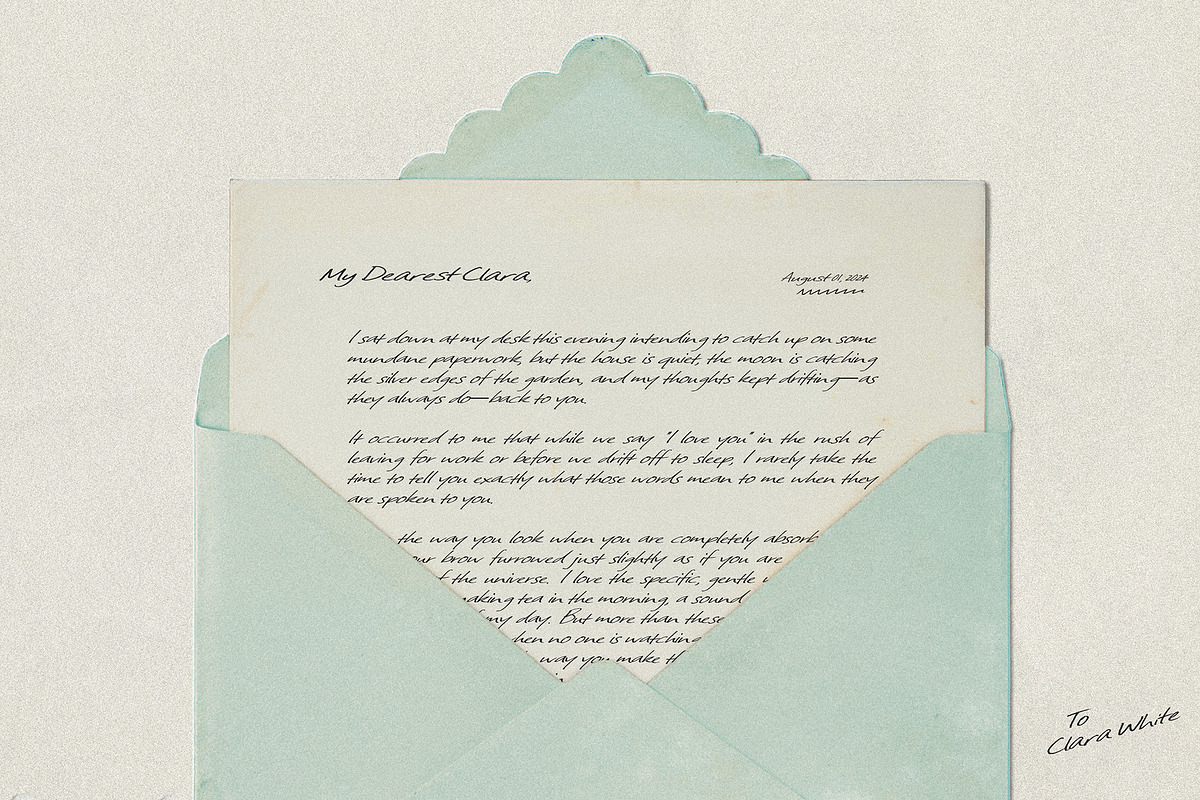 My Dearest Clara,
August 01, 2024
I sat down at my desk this evening intending to catch up on some
mundane paperwork, but the house is quiet, the moon is catching
the silver edges of the garden, and my thoughts kept drifting—as
they always do—back to you.
It occurred to me that while we say "I love you" in the rush of
leaving for work or before we drift off to sleep, I rarely take the
time to tell you exactly what those words mean to me when they
are spoken to you.
the way you look when you are completely absorb
our brow furrowed just slightly as if you are
f the universe. I love the specific, gentle
aking tea in the morning, a sound
my day. But more than these
hen no one is watching
way you make th
To
Clara White